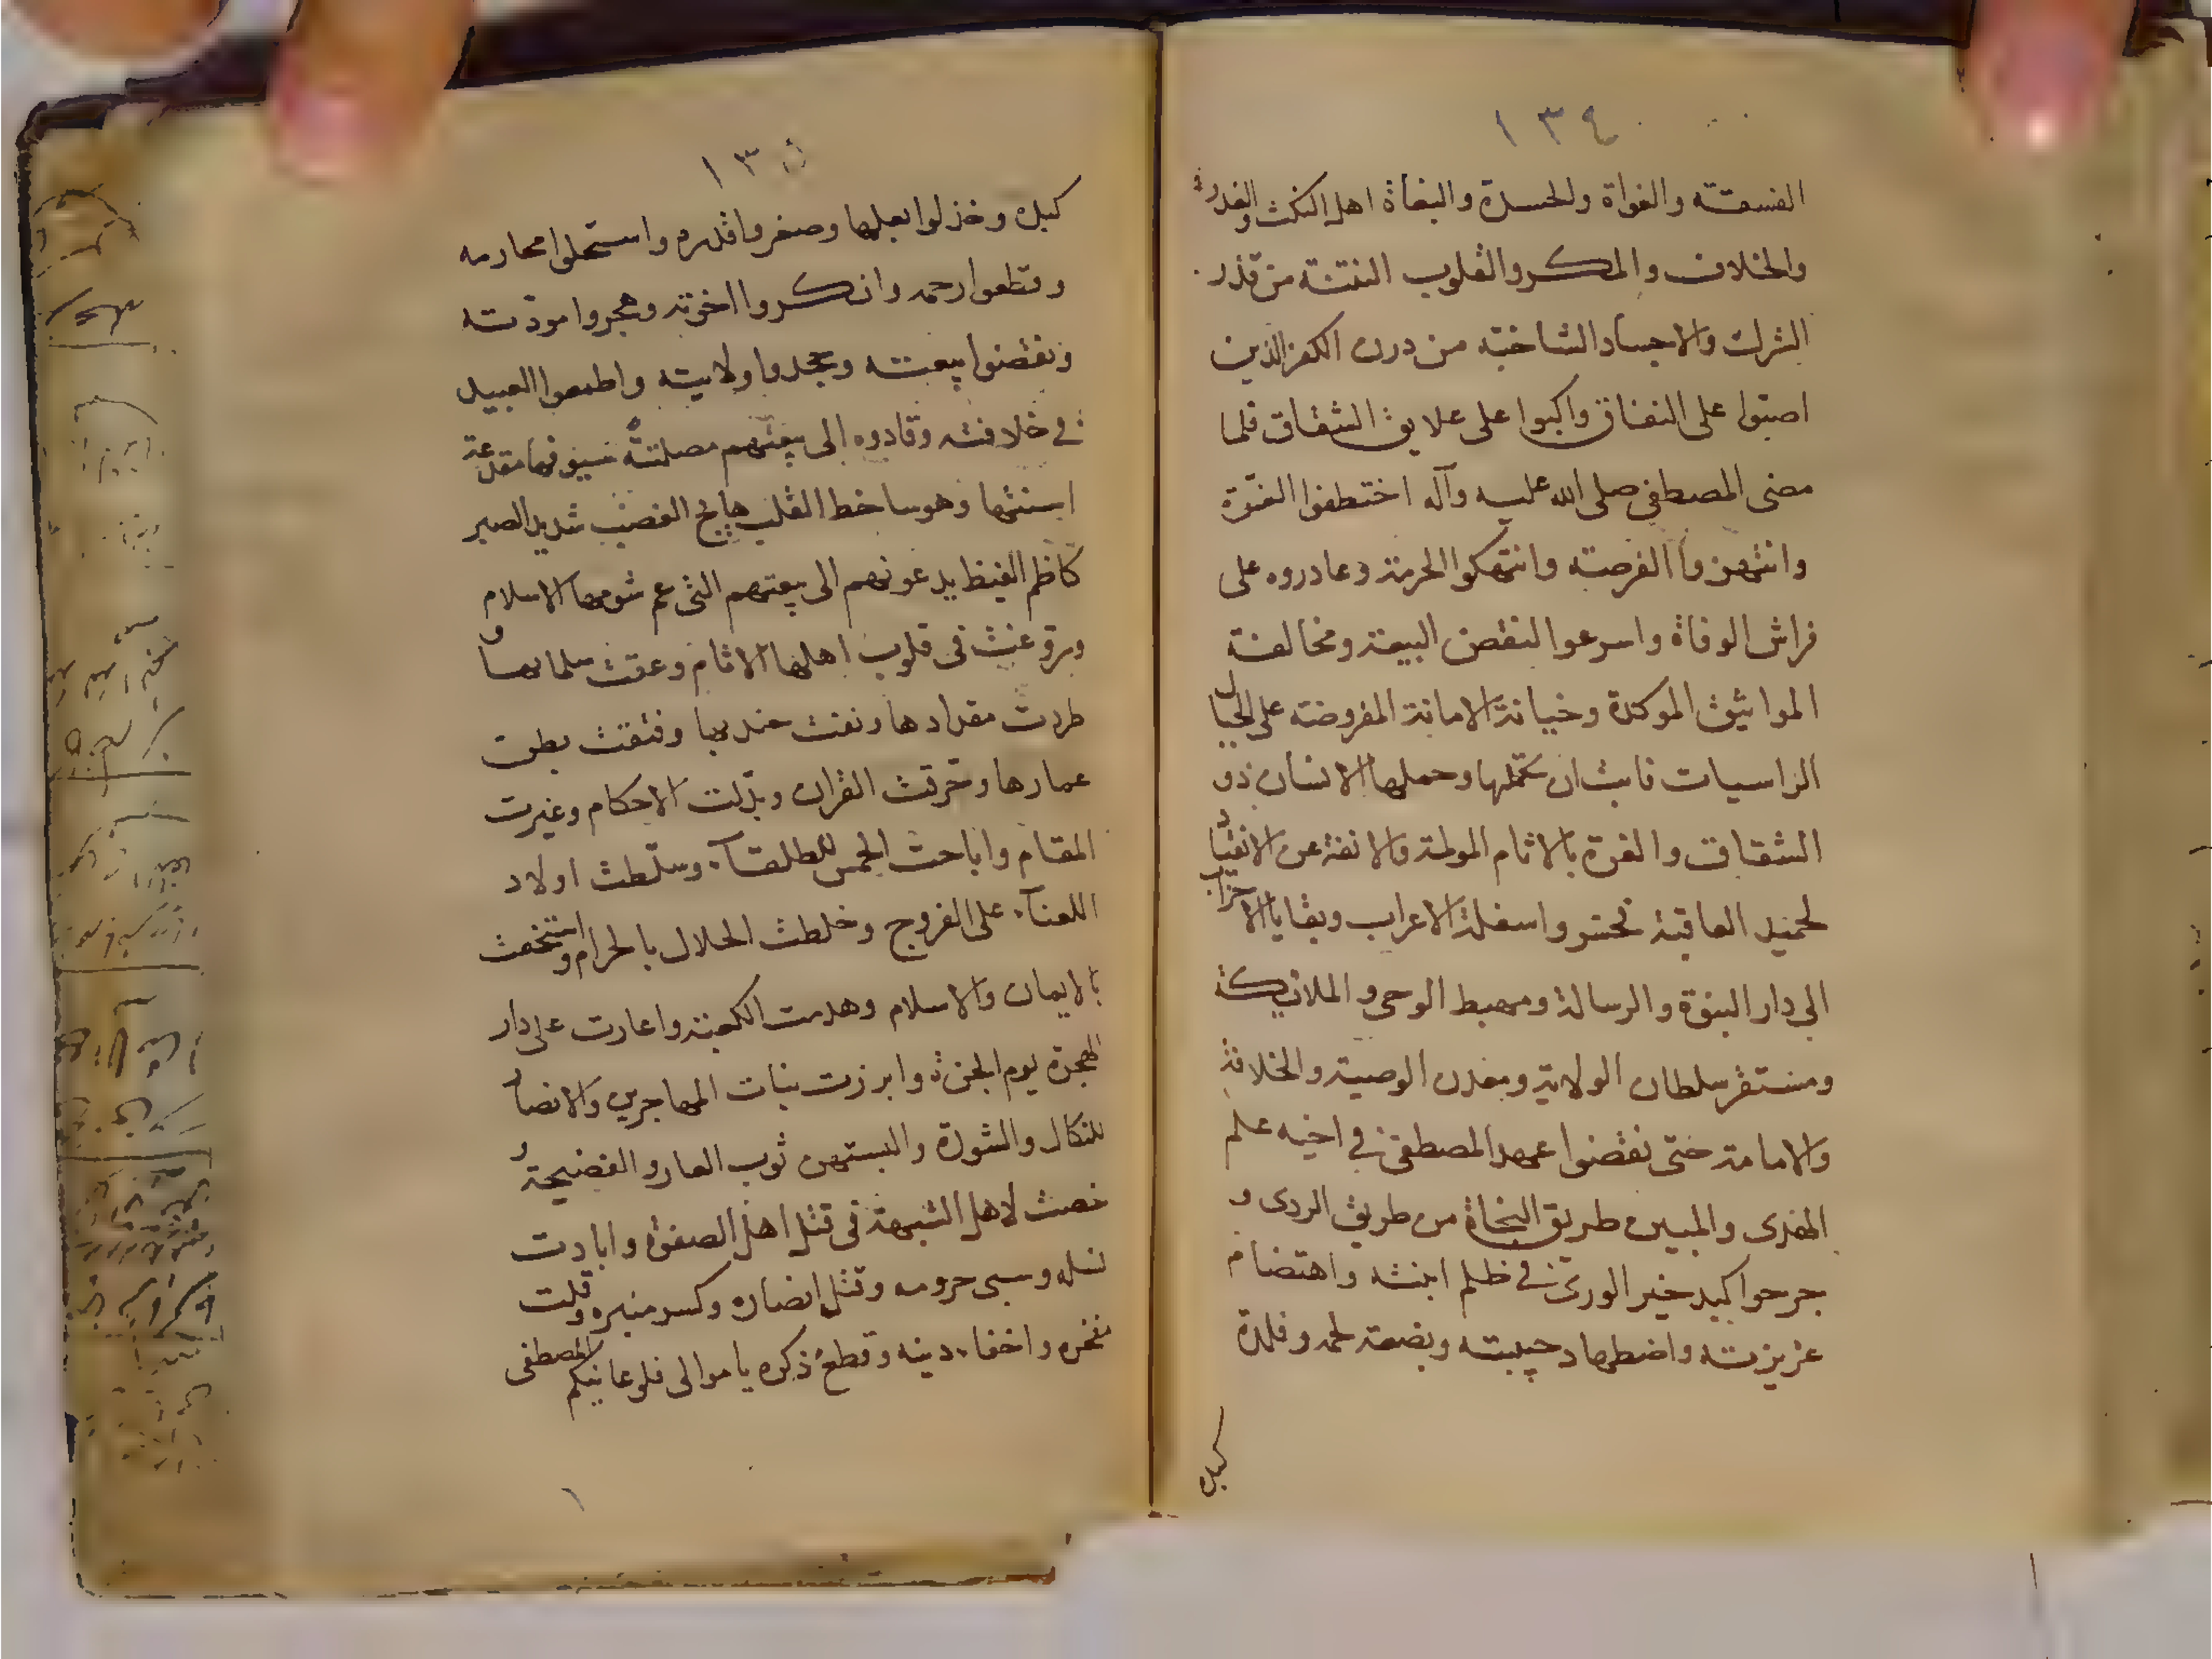 ١٣٤
الفسقة والغواة والحسدة والبغاة اهل النكث والغدر
والخلاف والمكر والقلوب النتنة من قذر
الشرك والاجساد الشاخبة من درن الكفر الذين
اضبوا على النفاق واكبوا على علايق الشقاق فلما
مضى المصطفى صلى الله عليه وآله اختطفوا الغرة
وانتهزوا الفرصة وانتهكوا الحرمة وغادروه على
فراش الوفاة واسرعوا لنقض البيعة ومخالفة
المواثيق الموكدة وخيانة الامانة المفروضة على الجبال
الراسيات فابت ان تحملها وحملها الانسان ذو
الشقاق والغرة بالاثام المولمة والانفة عن الانقياد
لحميد العاقبة فحشر واسفلة الاعراب وبقايا الاحزاب
الى دار النبوة والرسالة ومهبط الوحى والملائكة
ومستقر سلطان الولاية ومعدن الوصية والخلافة
والامامة حتى نقضوا عهد المصطفى فى اخيه علم
الهدى والمبين طريق النجاة من طريق الردى و
جرحوا كبد خير الورى فى ظلم ابنته واهتضام
عزيزته واضطهاد حبيبته وبضعة لحمه وفلذة
كبده
١٣٥
كبده وخذلوا بعلها وصغروا قدره واستحلوا محارمه
وقطعوا رحمه وانكروا اخوته وهجروا مودته
ونقضوا بيعته وجحدوا ولايته واطمعوا العبيد
فى خلافته وقادوه الى بيعتهم مصلتة سيوفها مقذعة
اسنتها وهو ساخط القلب هايج الغضب شديد الصبر
كاظم الغيظ يدعونهم الى بيعتهم التى عم شومها الاسلام
وزرعت فى قلوب اهلها الاثام وعقت سلمانها و
طردت مقدادها ونفت جندبها وفتقت بطن
عمارها وحرقت القران وبدلت الاحكام وغيرت
المقام واباحت الخمس للطلقآء وسلطت اولاد
اللعنآء على الفروج وخلطت الحلال بالحرام واستخفت
بالايمان والاسلام وهدمت الكعبة واغارت على دار
الهجرة يوم الحرة وابرزت بنات المهاجرين والانصار
للنكال والسورة والبستهن ثوب العار والفضيحة و
رخصت لاهل الشبهة فى قتل اهل الصفوة وابادت
نسله وسبى حرمه وقتل انصاره وكسر منبره وقلت
مفخره واخفاء دينه وقطع ذكره يا موالى فلو عاينكم المصطفى